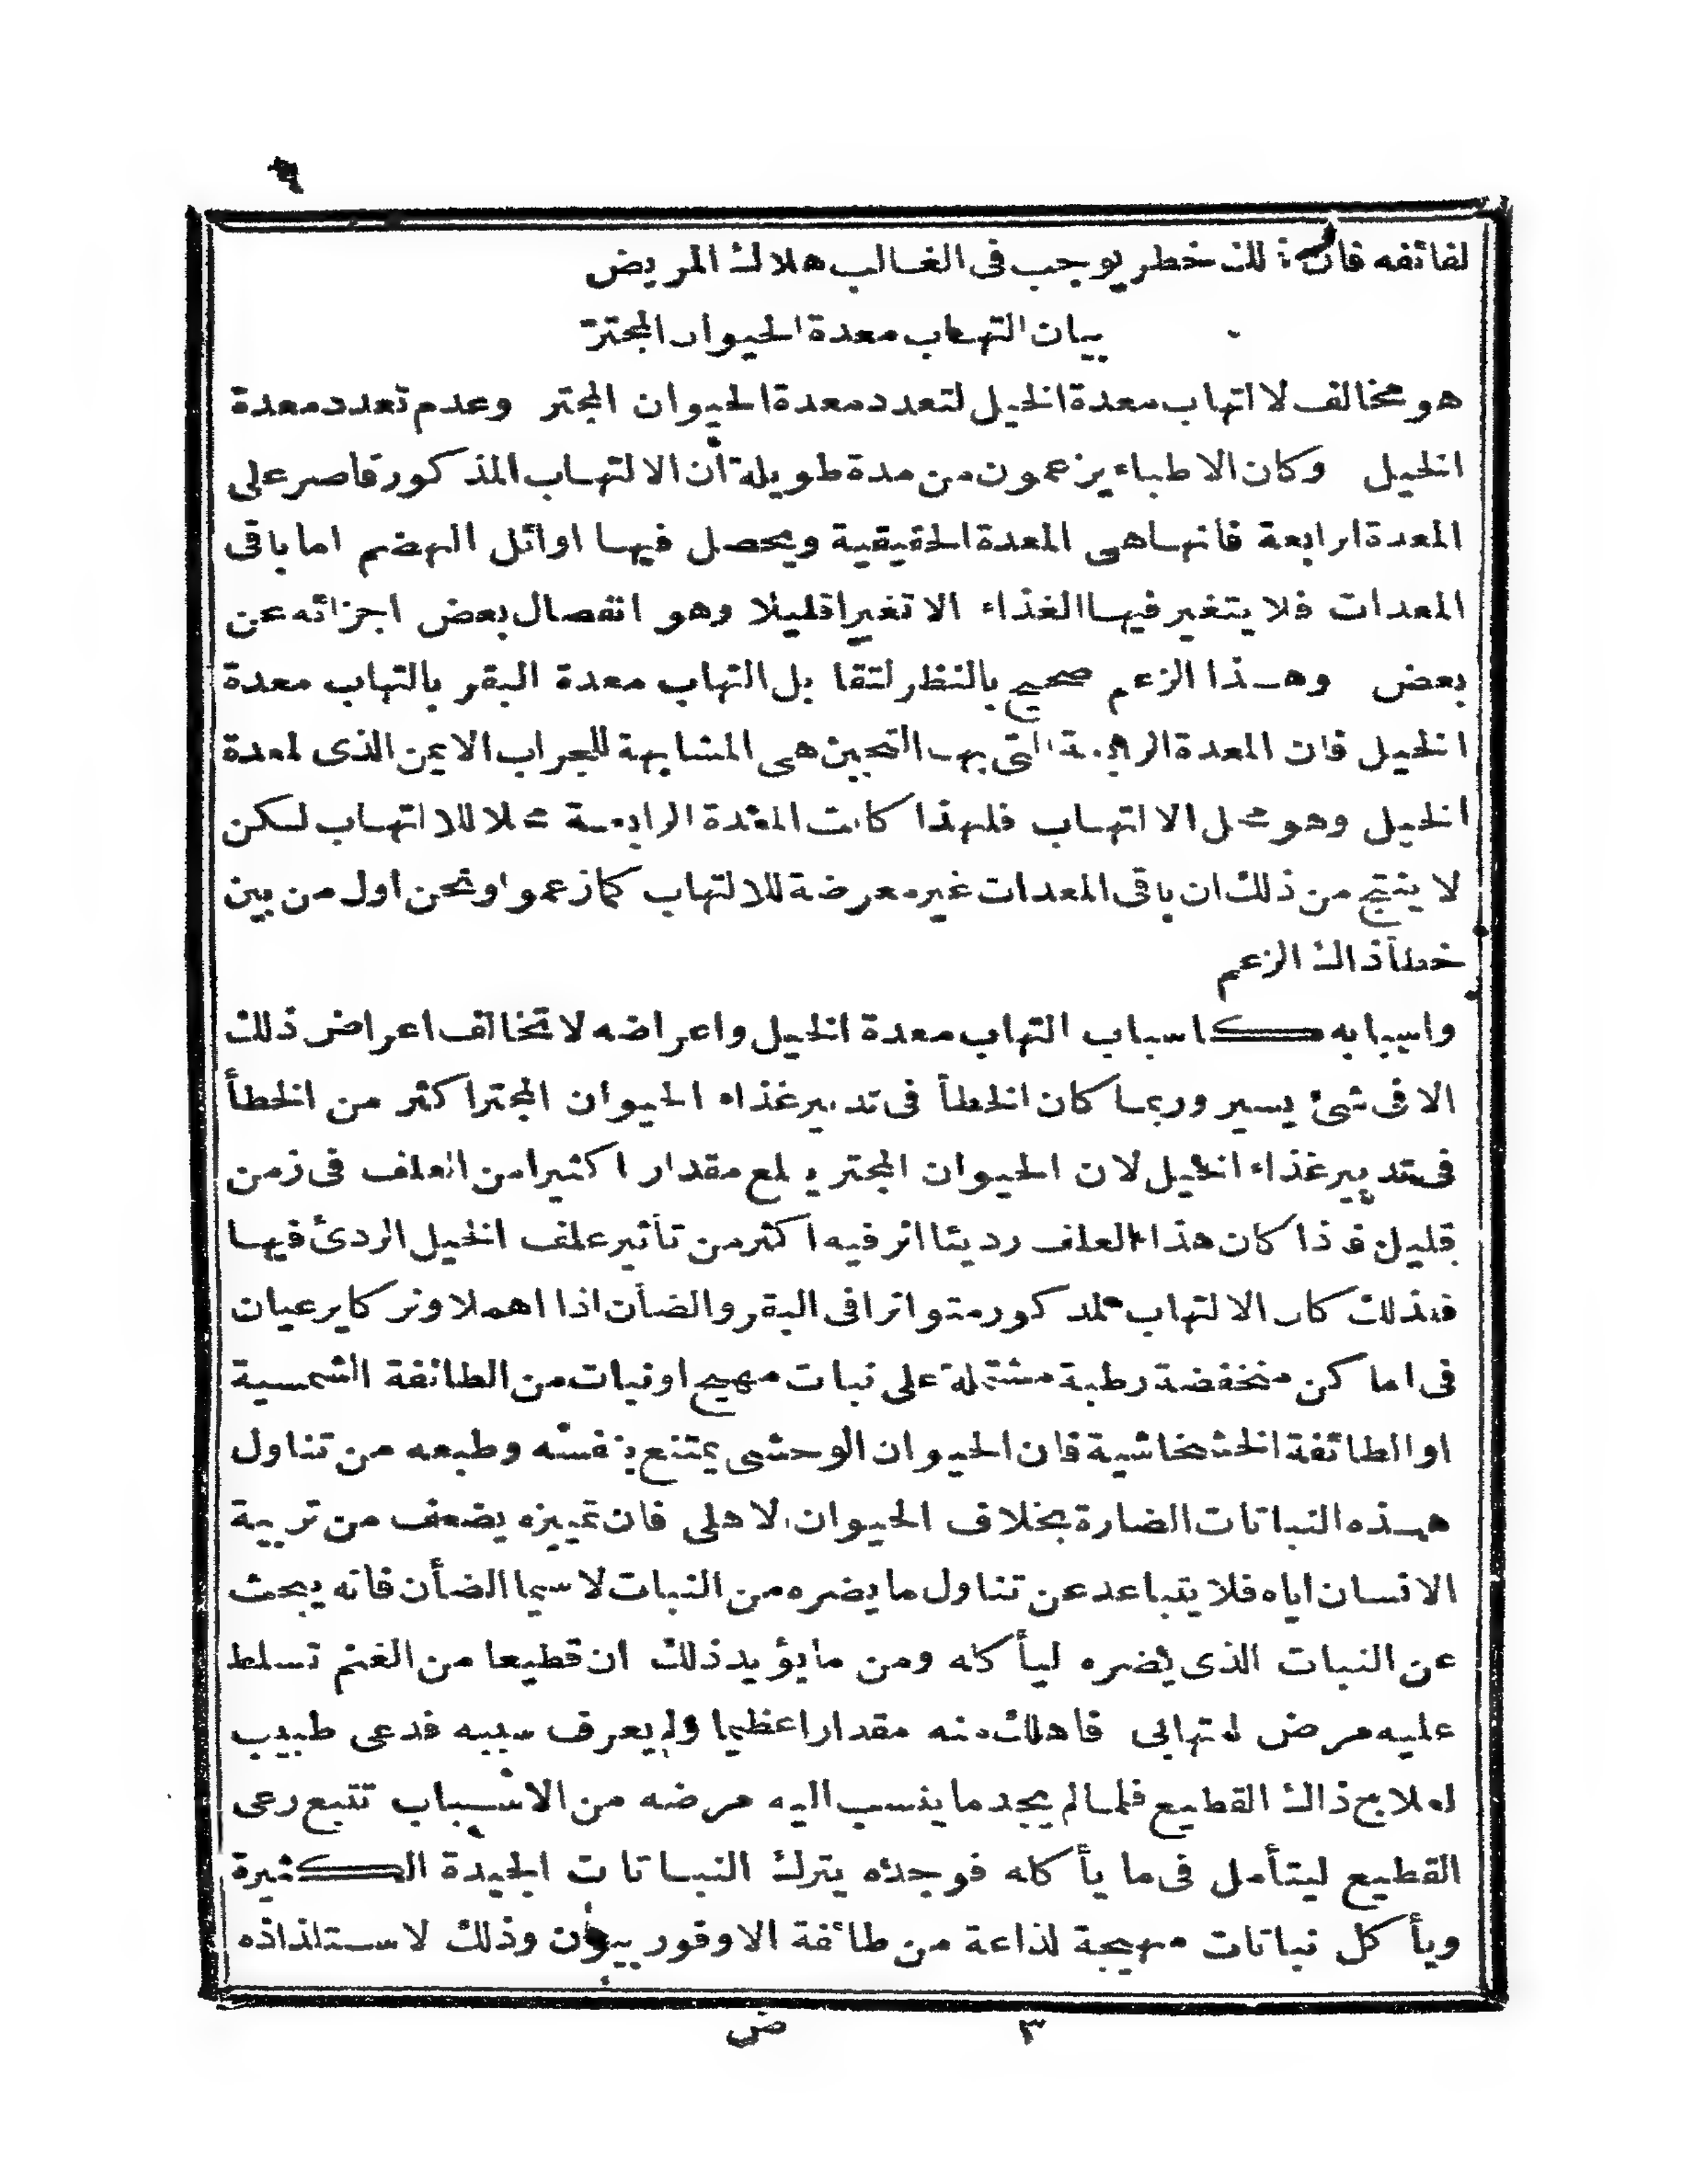 ٩
لفائفه فان ذلك خطر يوجب فى الغالب هلاك المريض
بيان التهاب معدة الحيوان المجترة
هو مخالف لالتهاب معدة الخيل لتعدد معدة الحيوان المجتر وعدم تعدد معدة
الخيل وكان الاطباء يزعمون من مدة طويلة أن الالتهاب المذكور قاصر على
المعدة الرابعة فأنها هى المعدة الحقيقية ويحصل فيها اوائل الهضم اما باقى
المعدات فلا يتغير فيها الغذاء الا تغيرا قليلا وهو انفصال بعض اجزائه عن
بعض وهذا الزعم صحيح بالنظر لتقابل التهاب معدة البقر بالتهاب معدة
الخيل فان المعدة الرابعة التى بها التجبن هى المشابهة للجراب الايمن الذى لمعدة
الخيل وهو محل الالتهاب فلهذا كانت المعدة الرابعة محلا للالتهاب لكن
لا ينتج من ذلك ان باقى المعدات غير معرضة للالتهاب كما زعموا ونحن اول من بين
خطأ ذاك الزعم
واسبابه كاسباب التهاب معدة الخيل واعراضه لا تخالف اعراض ذلك
الا فى شئ يسير وربما كان الخطأ فى تدبير غذاء الحيوان المجتر اكثر من الخطأ
فى تدبير غذاء الخيل لان الحيوان المجتر يبلع مقدارا كثيرا من العلف فى زمن
قليل فاذا كان هذا العلف رديئا اثر فيه اكثر من تأثير علف الخيل الردئ فيها
فبذلك كان الالتهاب المذكور متواترا فى البقر والضأن اذا اهملا وتركا يرعيان
فى اماكن منخفضة رطبة مشتملة على نبات مهيج او نبات من الطائفة الشمسية
او الطائفة الخشخاشية فان الحيوان الوحشى يمتنع بنفسه وطبعه من تناول
هذه النباتات الضارة بخلاف الحيوان الاهلى فان تمييزه يضعف من تربية
الانسان اياه فلا يتباعد عن تناول ما يضره من النبات لا سيما الضأن فانه يبحث
عن النبات الذى يضره ليأكله ومن ما يؤيد ذلك ان قطيعا من الغنم تسلط
عليه مرض التهابى فاهلك منه مقدارا عظيما ولم يعرف سببه فدعى طبيب
لعلاج ذاك القطيع فلما لم يجد ما ينسب اليه مرضه من الاسباب تتبع رعى
القطيع ليتأمل فى ما يأكله فوجده يترك النباتات الجيدة الكثيرة
ويأكل نباتات مهيجة لذاعة من طائفة الاوفوربيون وذلك لاستلذاذه
٣ ض